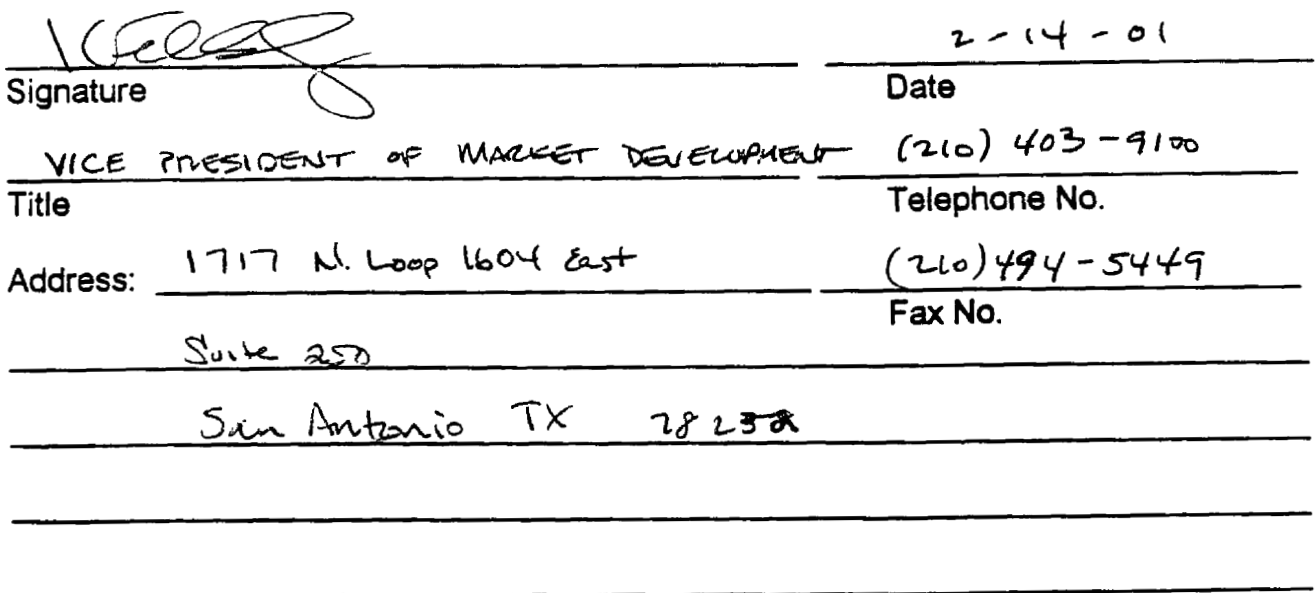 2-14-01
Signature Date
VICE PRESIDENT OF MARKET DEVELOPMENT (210) 403-9100
Title Telephone No.
Address: 1717 N. Loop 1604 East (210) 494-5449
Fax No.
Suite 250
San Antonio TX 78232